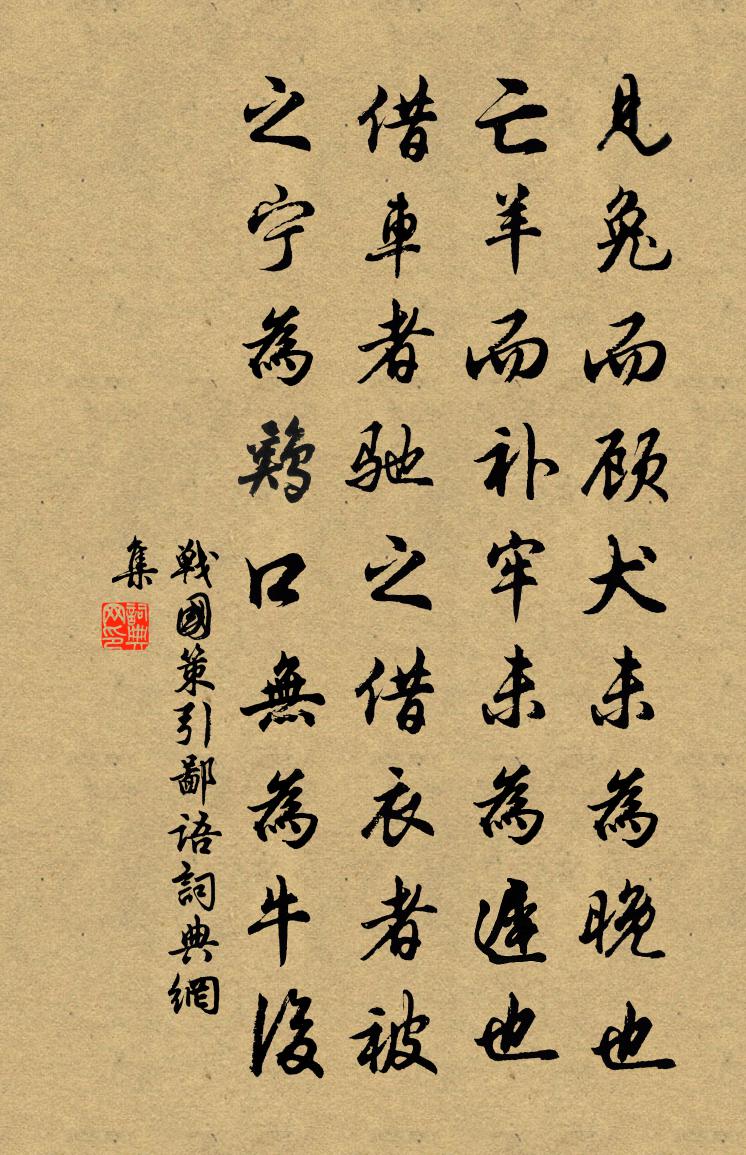 見兔而顾犬未為晚也
亡羊而补牢未為遲也
借車者驰之借衣者被
之宁為鷄口無為牛後
戰國策引鄙语詞典網
集
詞典
网印